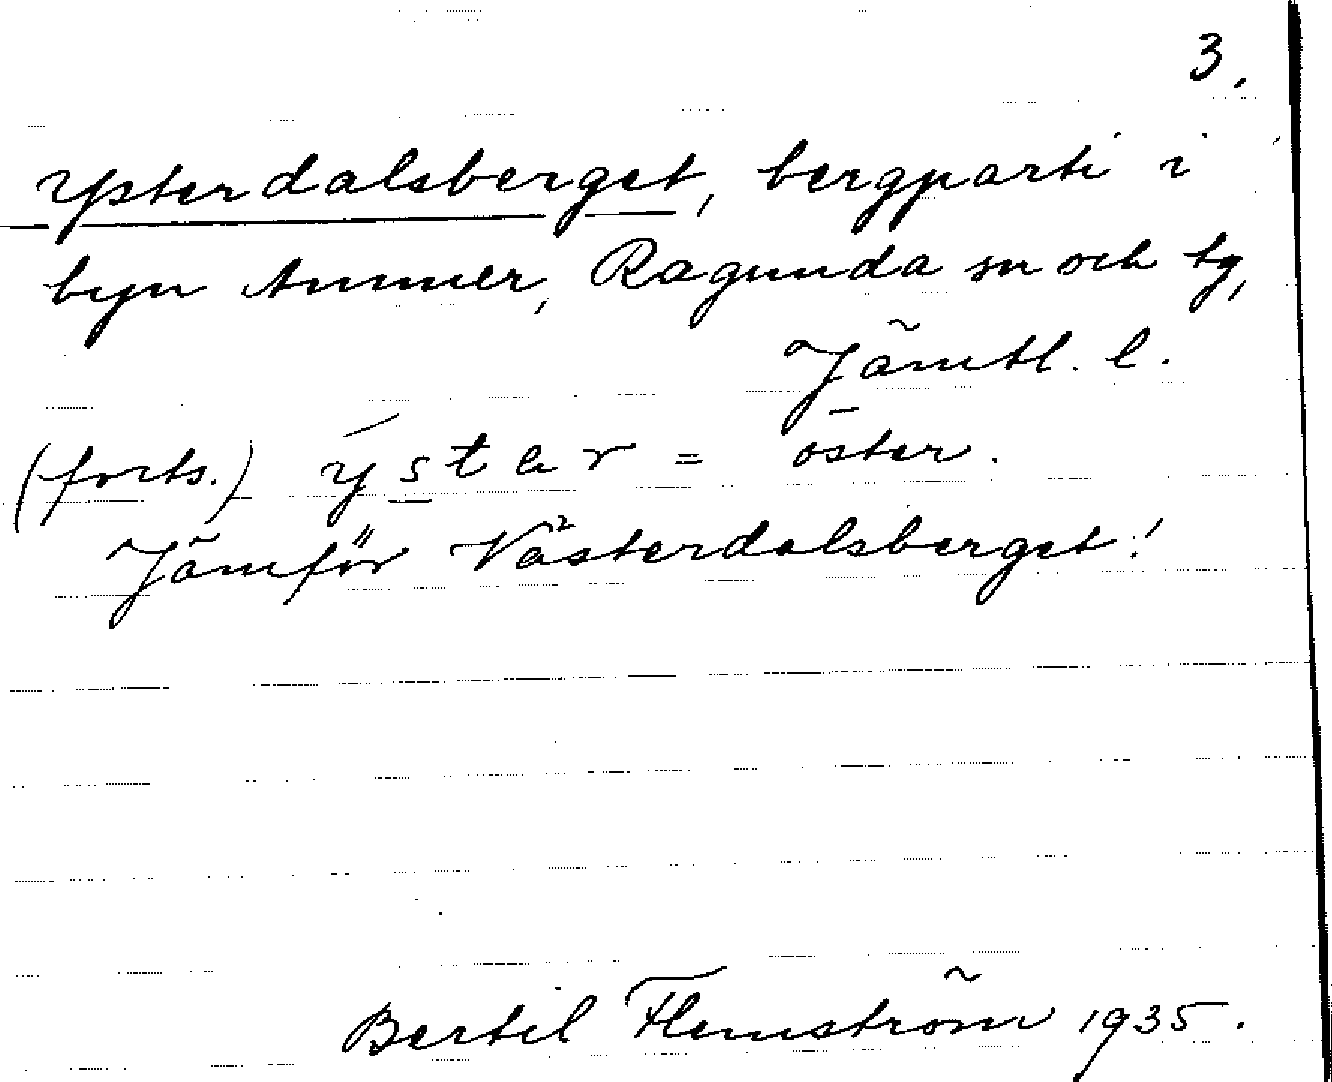 3.
Ysterdalsberget, bergparti i
byn Ammer, Ragunda sn och tg,
Jämtl. l.
(forts.) ýster = öster.
Jämför Västerdalsberget!
Bertil Flemström 1935.